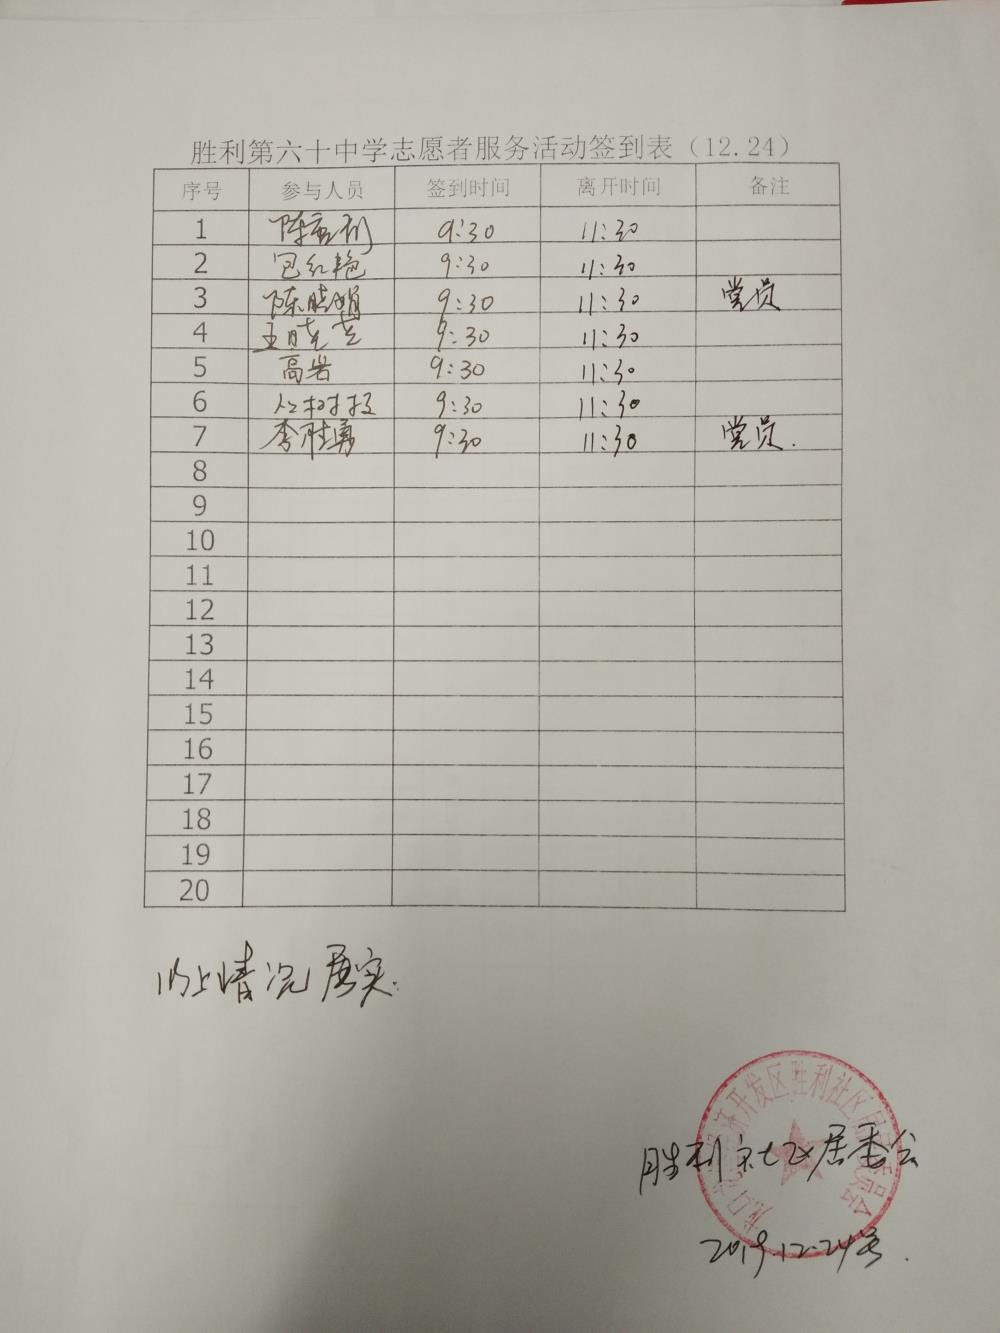 胜利第六十中学志愿者服务活动签到表（12.24）
序号 参与人员 签到时间 离开时间 备注
1 9:30 11:30
2 包红艳 9:30 11:30
3 陈晓娟 9:30 11:30 党员
4 王晓芝 9:30 11:30
5 高岩 9:30 11:30
6 9:30 11:30
7 李胜勇 9:30 11:30 党员.
8
9
10
11
12
13
14
15
16
17
18
19
20
以上情况属实.
开发区胜利社区居民委员会
胜利社区居委会
2019.12.24号.